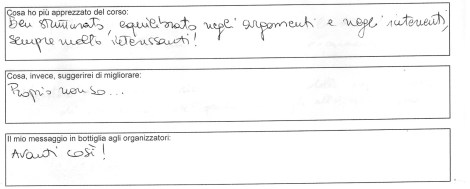 Cosa ho più apprezzato del corso:
Ben strutturato, equilibrato negli argomenti e negli interventi,
sempre molto interessanti!
Cosa, invece, suggerirei di migliorare:
Proprio non so...
Il mio messaggio in bottiglia agli organizzatori:
Avanti così!